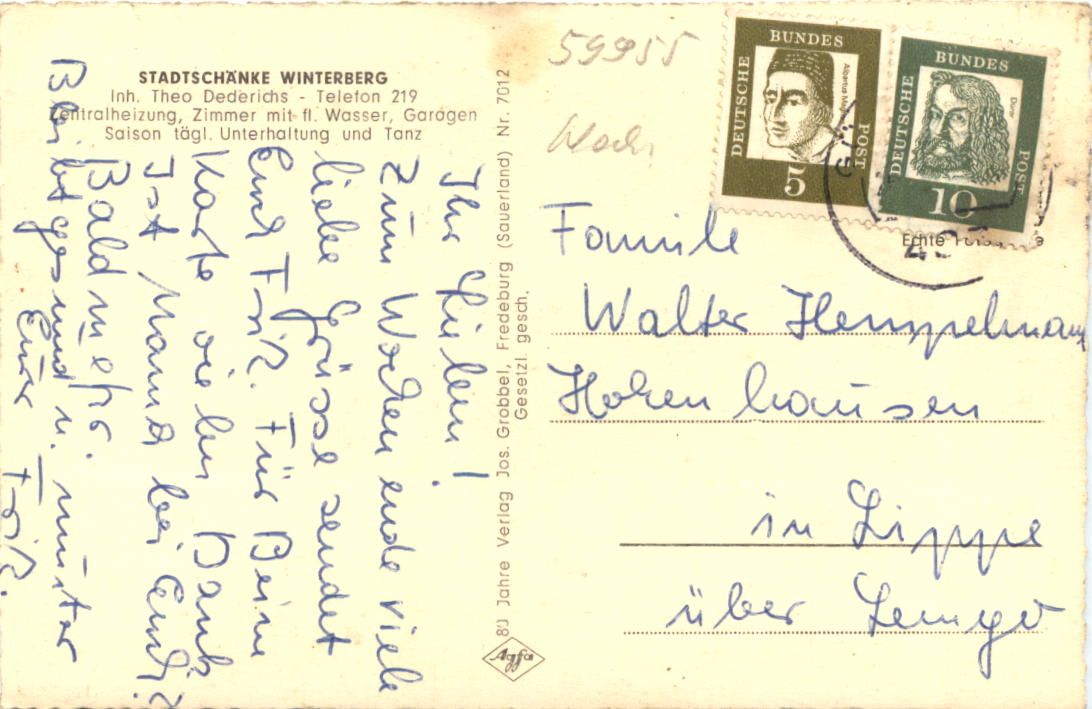 STADTSCHÄNKE WINTERBERG
Inh. Theo Dederichs - Telefon 219
Zentralheizung, Zimmer mit fl. Wasser, Garagen
Saison tägl. Unterhaltung und Tanz
Ihr Lieben!
Zum Wochenende viele
liebe Grüsse sendet
Euch Friz. Für Deine
Karte vielen Dank
Ist Mama bei Euch?
Bald mehr.
Bleibt gesund u. munter
Euer Friz.
80 Jahre Verlag Jos. Grobbel, Fredeburg (Sauerland) Nr. 7012
Gesetzl. gesch.
Agfa
59955
DEUTSCHE BUNDES POST
5
DEUTSCHE BUNDES POST
Dürer
10
Echte
Familie
Walter Hempelmann
Hohenhausen
in Lippe
über Lemgo